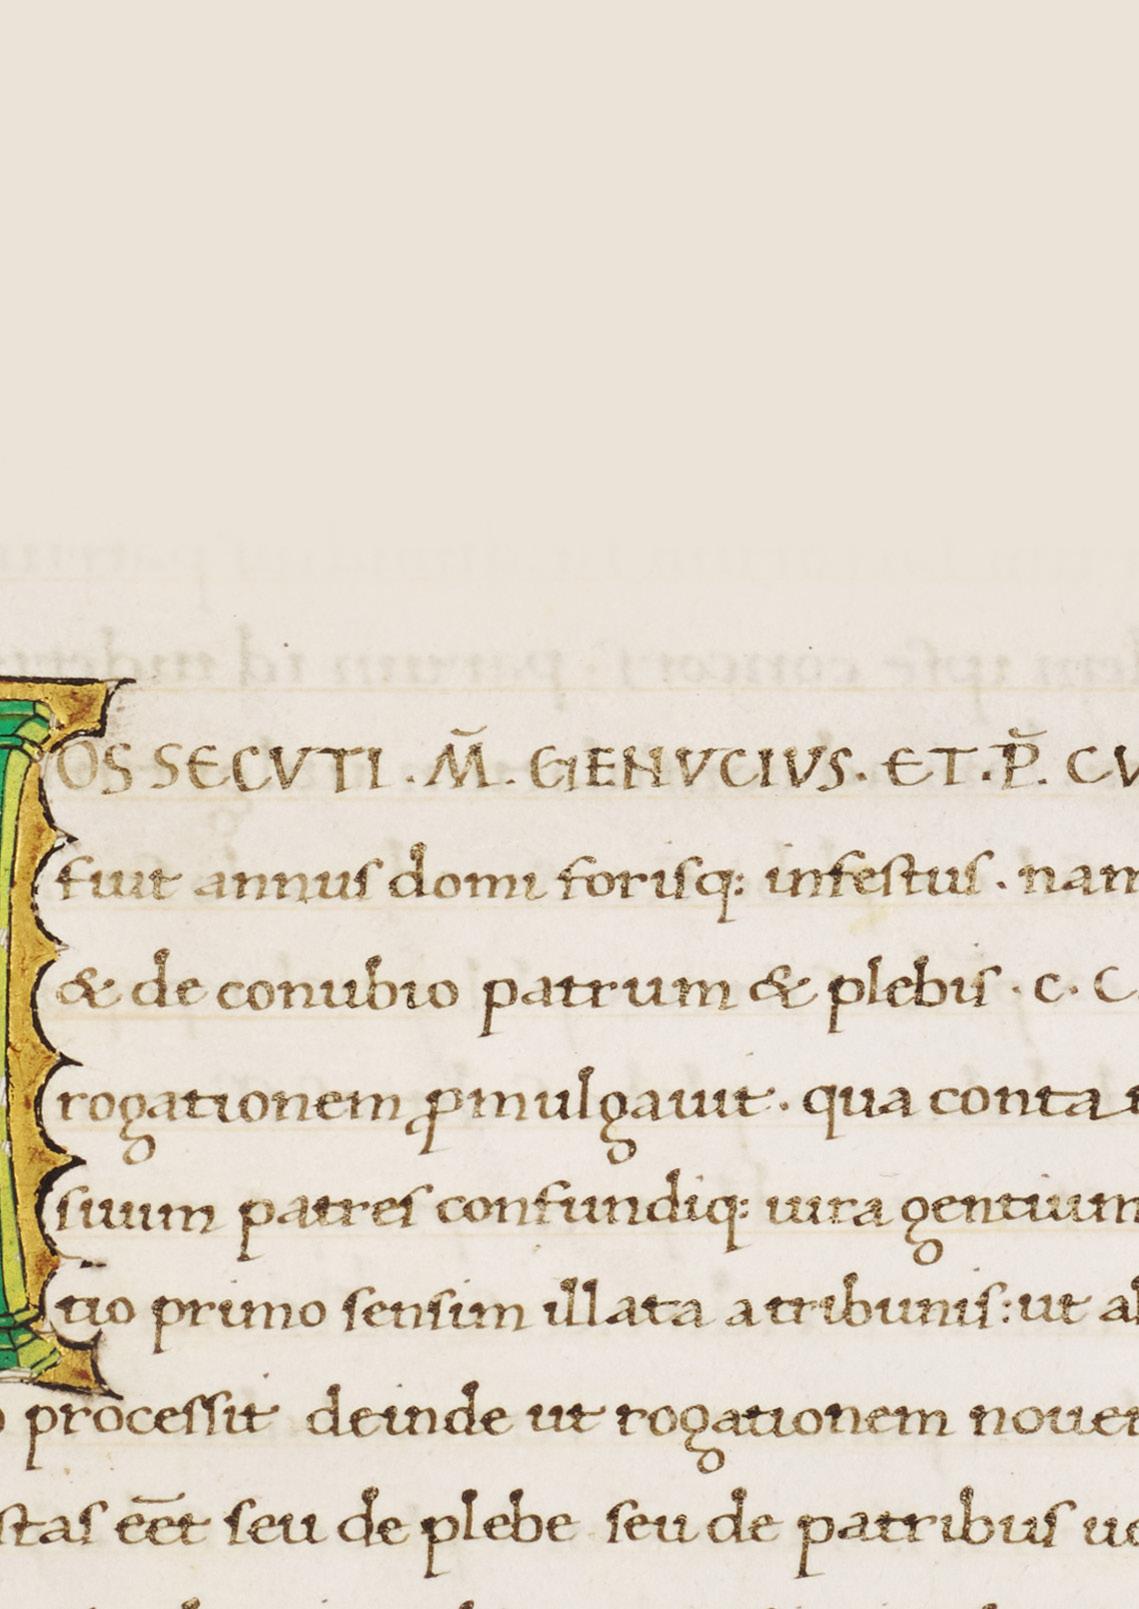 OS SECVTI . M̄. GENVCIUS. ET. P̄. CV
fuit annus domi forisq: infestus . nam
& de conubio patrum & plebis . c. C.
rogationem ꝓmulgauit . qua conta
suum patres confundiq: iura gentium
tio primo sensim illata a tribunis: ut al
processit deinde ut rogationem nouem
stas eēt seu de plebe seu de patribus ue